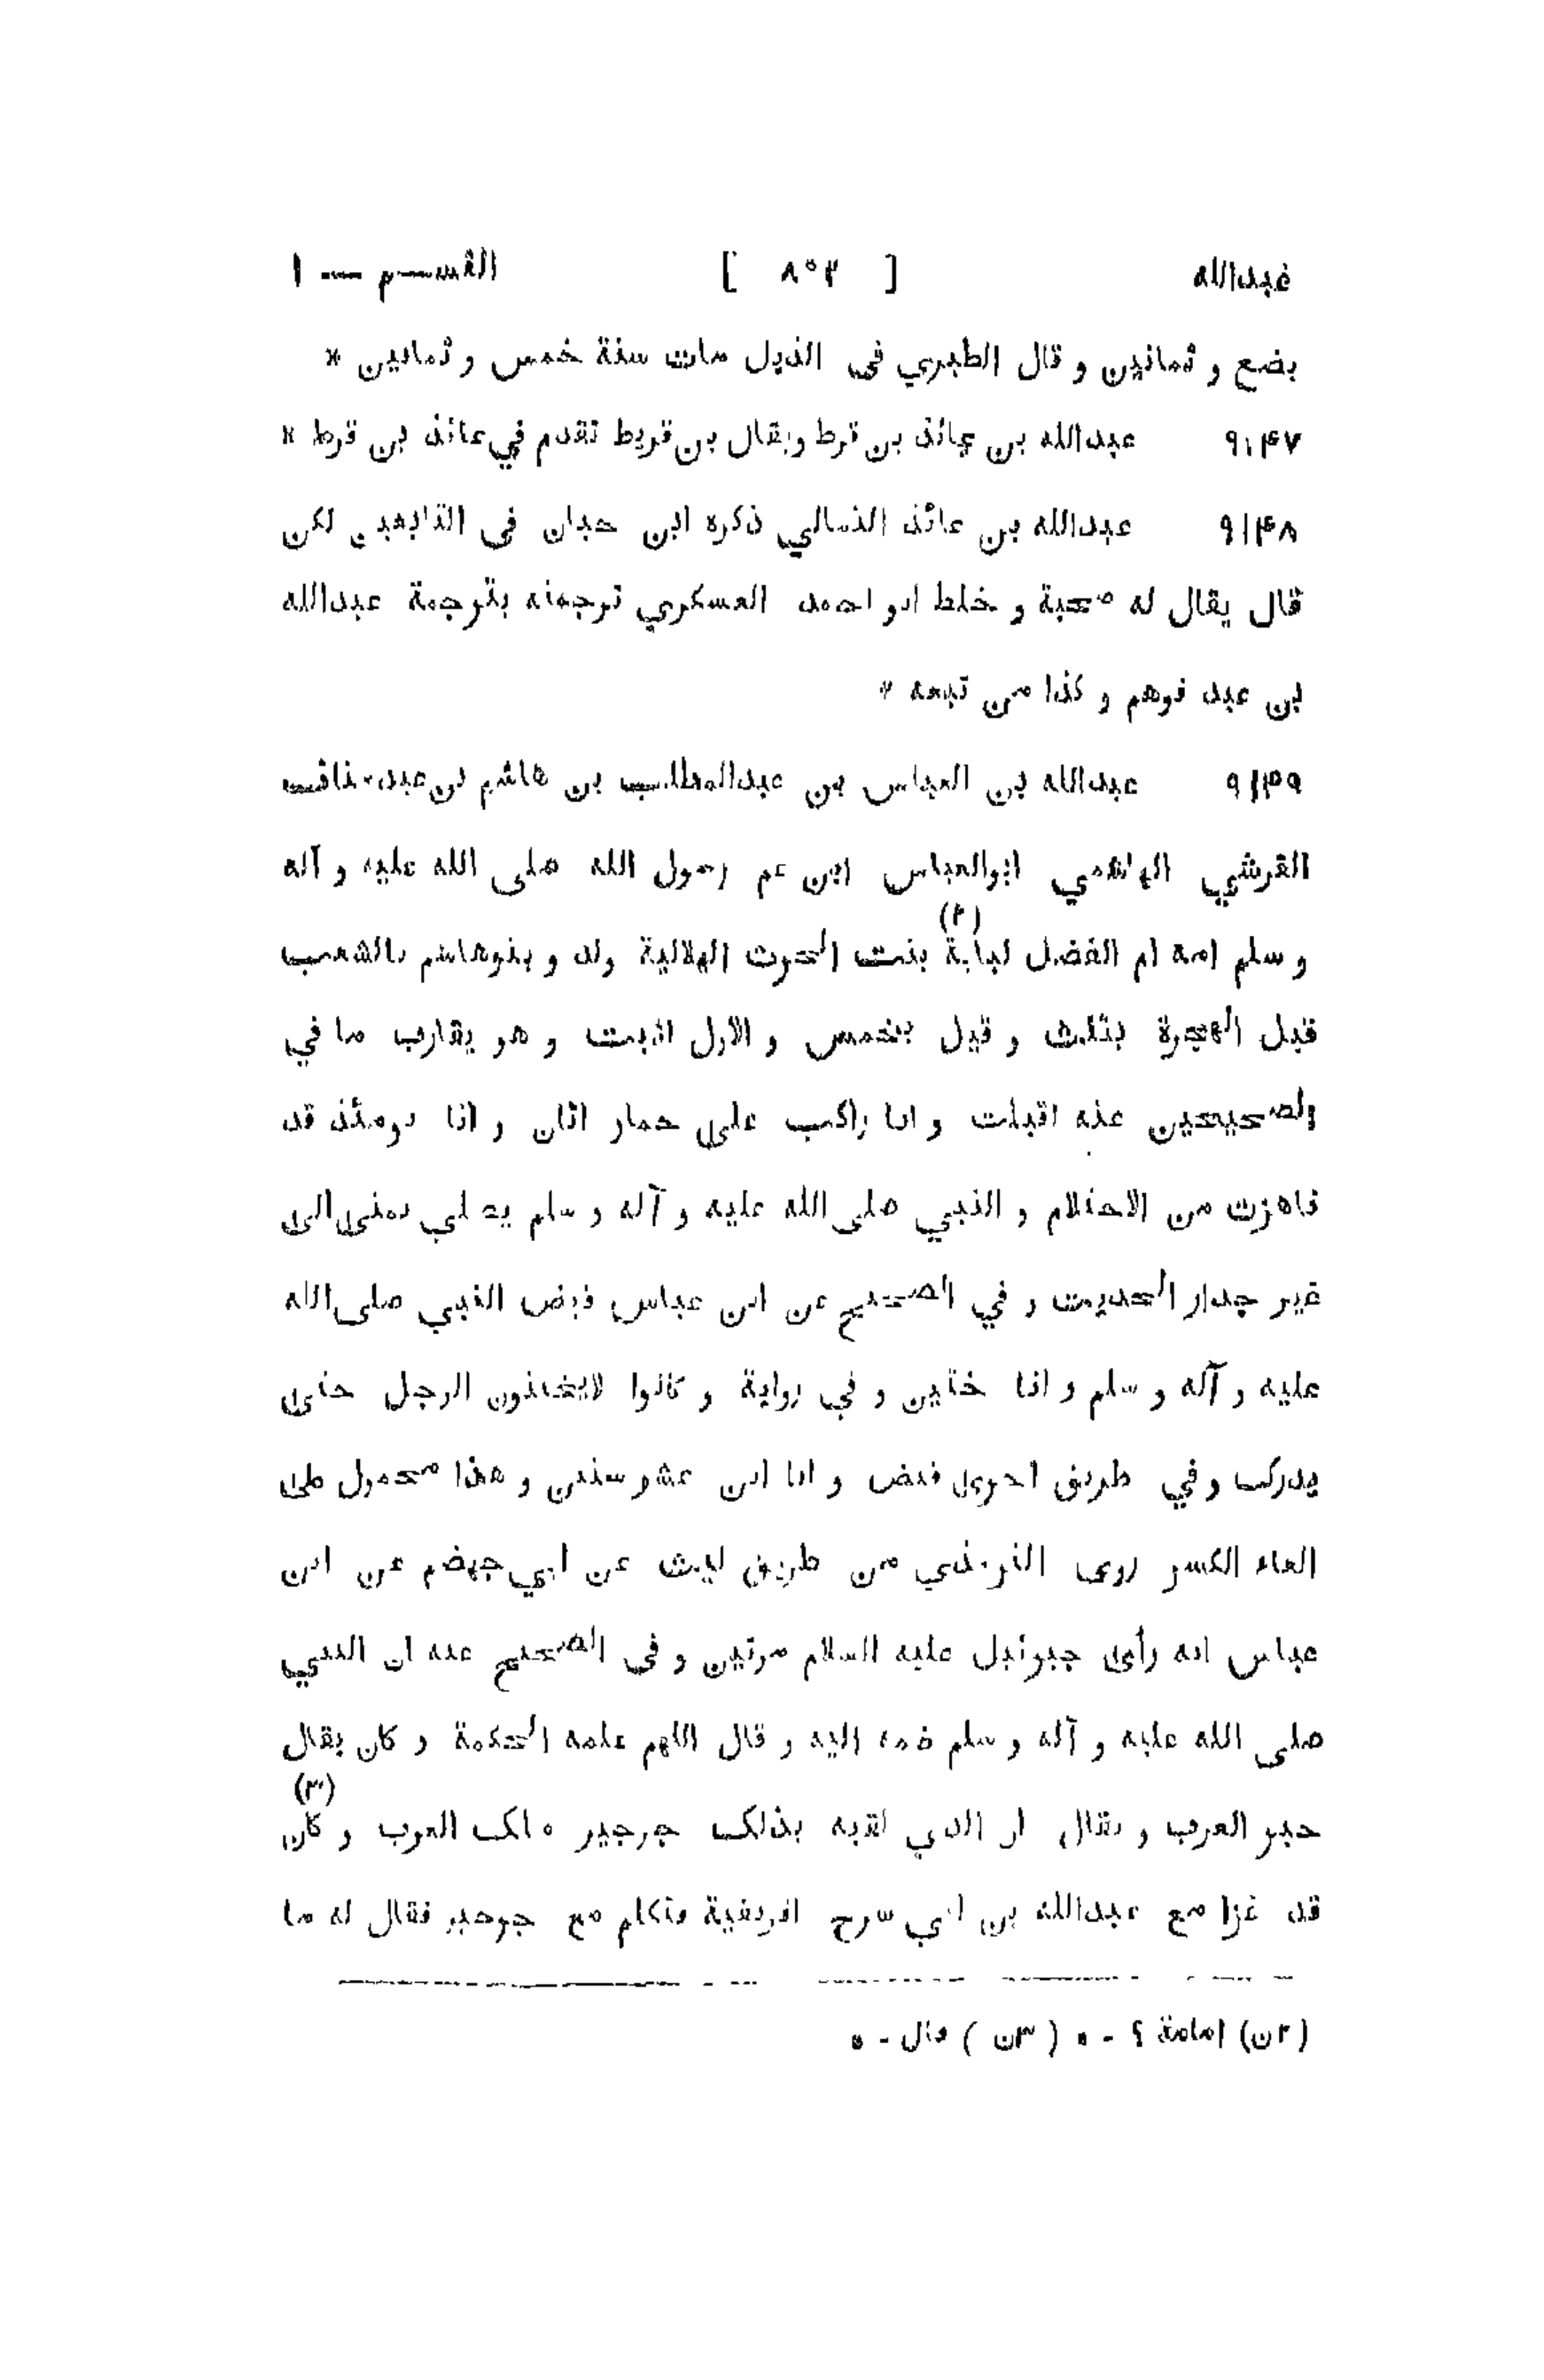 عبدالله [ ٨٠٢ ] القسم — ١
بضع و ثمانين و قال الطبري فى الذيل مات سنة خمس و ثمانين *
٩١٤٧ عبدالله بن عائذ بن قرط ويقال بن قريط تقدم في عائذ بن قرط *
٩١٤٨ عبدالله بن عائذ الثمالي ذكره ابن حبان فى التابعين لكن
قال يقال له صحبة و خلط ابو احمد العسكري ترجمته بترجمة عبدالله
بن عبد فوهم و كذا من تبعه *
٩١٤٩ عبدالله بن العباس بن عبدالمطلب بن هاشم بن عبد مناف
القرشي الهاشمي ابوالعباس ابن عم رسول الله صلى الله عليه و آله
و سلم امه ام الفضل لبابة (٢) بنت الحرث الهلالية ولد و بنوهاشم بالشعب
قبل الهجرة بثلث و قيل بخمس و الاول اثبت و هو يقارب ما في
الصحيحين عنه اقبلت و انا راكب على حمار اتان و انا يومئذ قد
ناهزت من الاحتلام و النبي صلى الله عليه و آله و سلم يصلي بمنى الى
غير جدار الحديث و في الصحيح عن ابن عباس قبض النبي صلى الله
عليه و آله و سلم و انا ختين و في رواية و كانوا لايختنون الرجل حتى
يدرك و في طريق اخرى قبض و انا ابن عشر سنين و هذا محمول على
الغاء الكسر روى الترمذي من طريق ليث عن ابي جهضم عن ابن
عباس انه رأى جبرئيل عليه السلام مرتين و فى الصحيح عنه ان النبي
صلى الله عليه و آله و سلم ضمه اليه و قال اللهم علمه الحكمة و كان يقال
حبر العرب و يقال ان الذي لقبه بذلك جرجير ملك العرب و كان (٣)
قد غزا مع عبدالله بن ابي سرح افريقية فتكلم مع جرجير فقال له ما
(٢ن) امامة ؟ - * (٣ن) قال - *